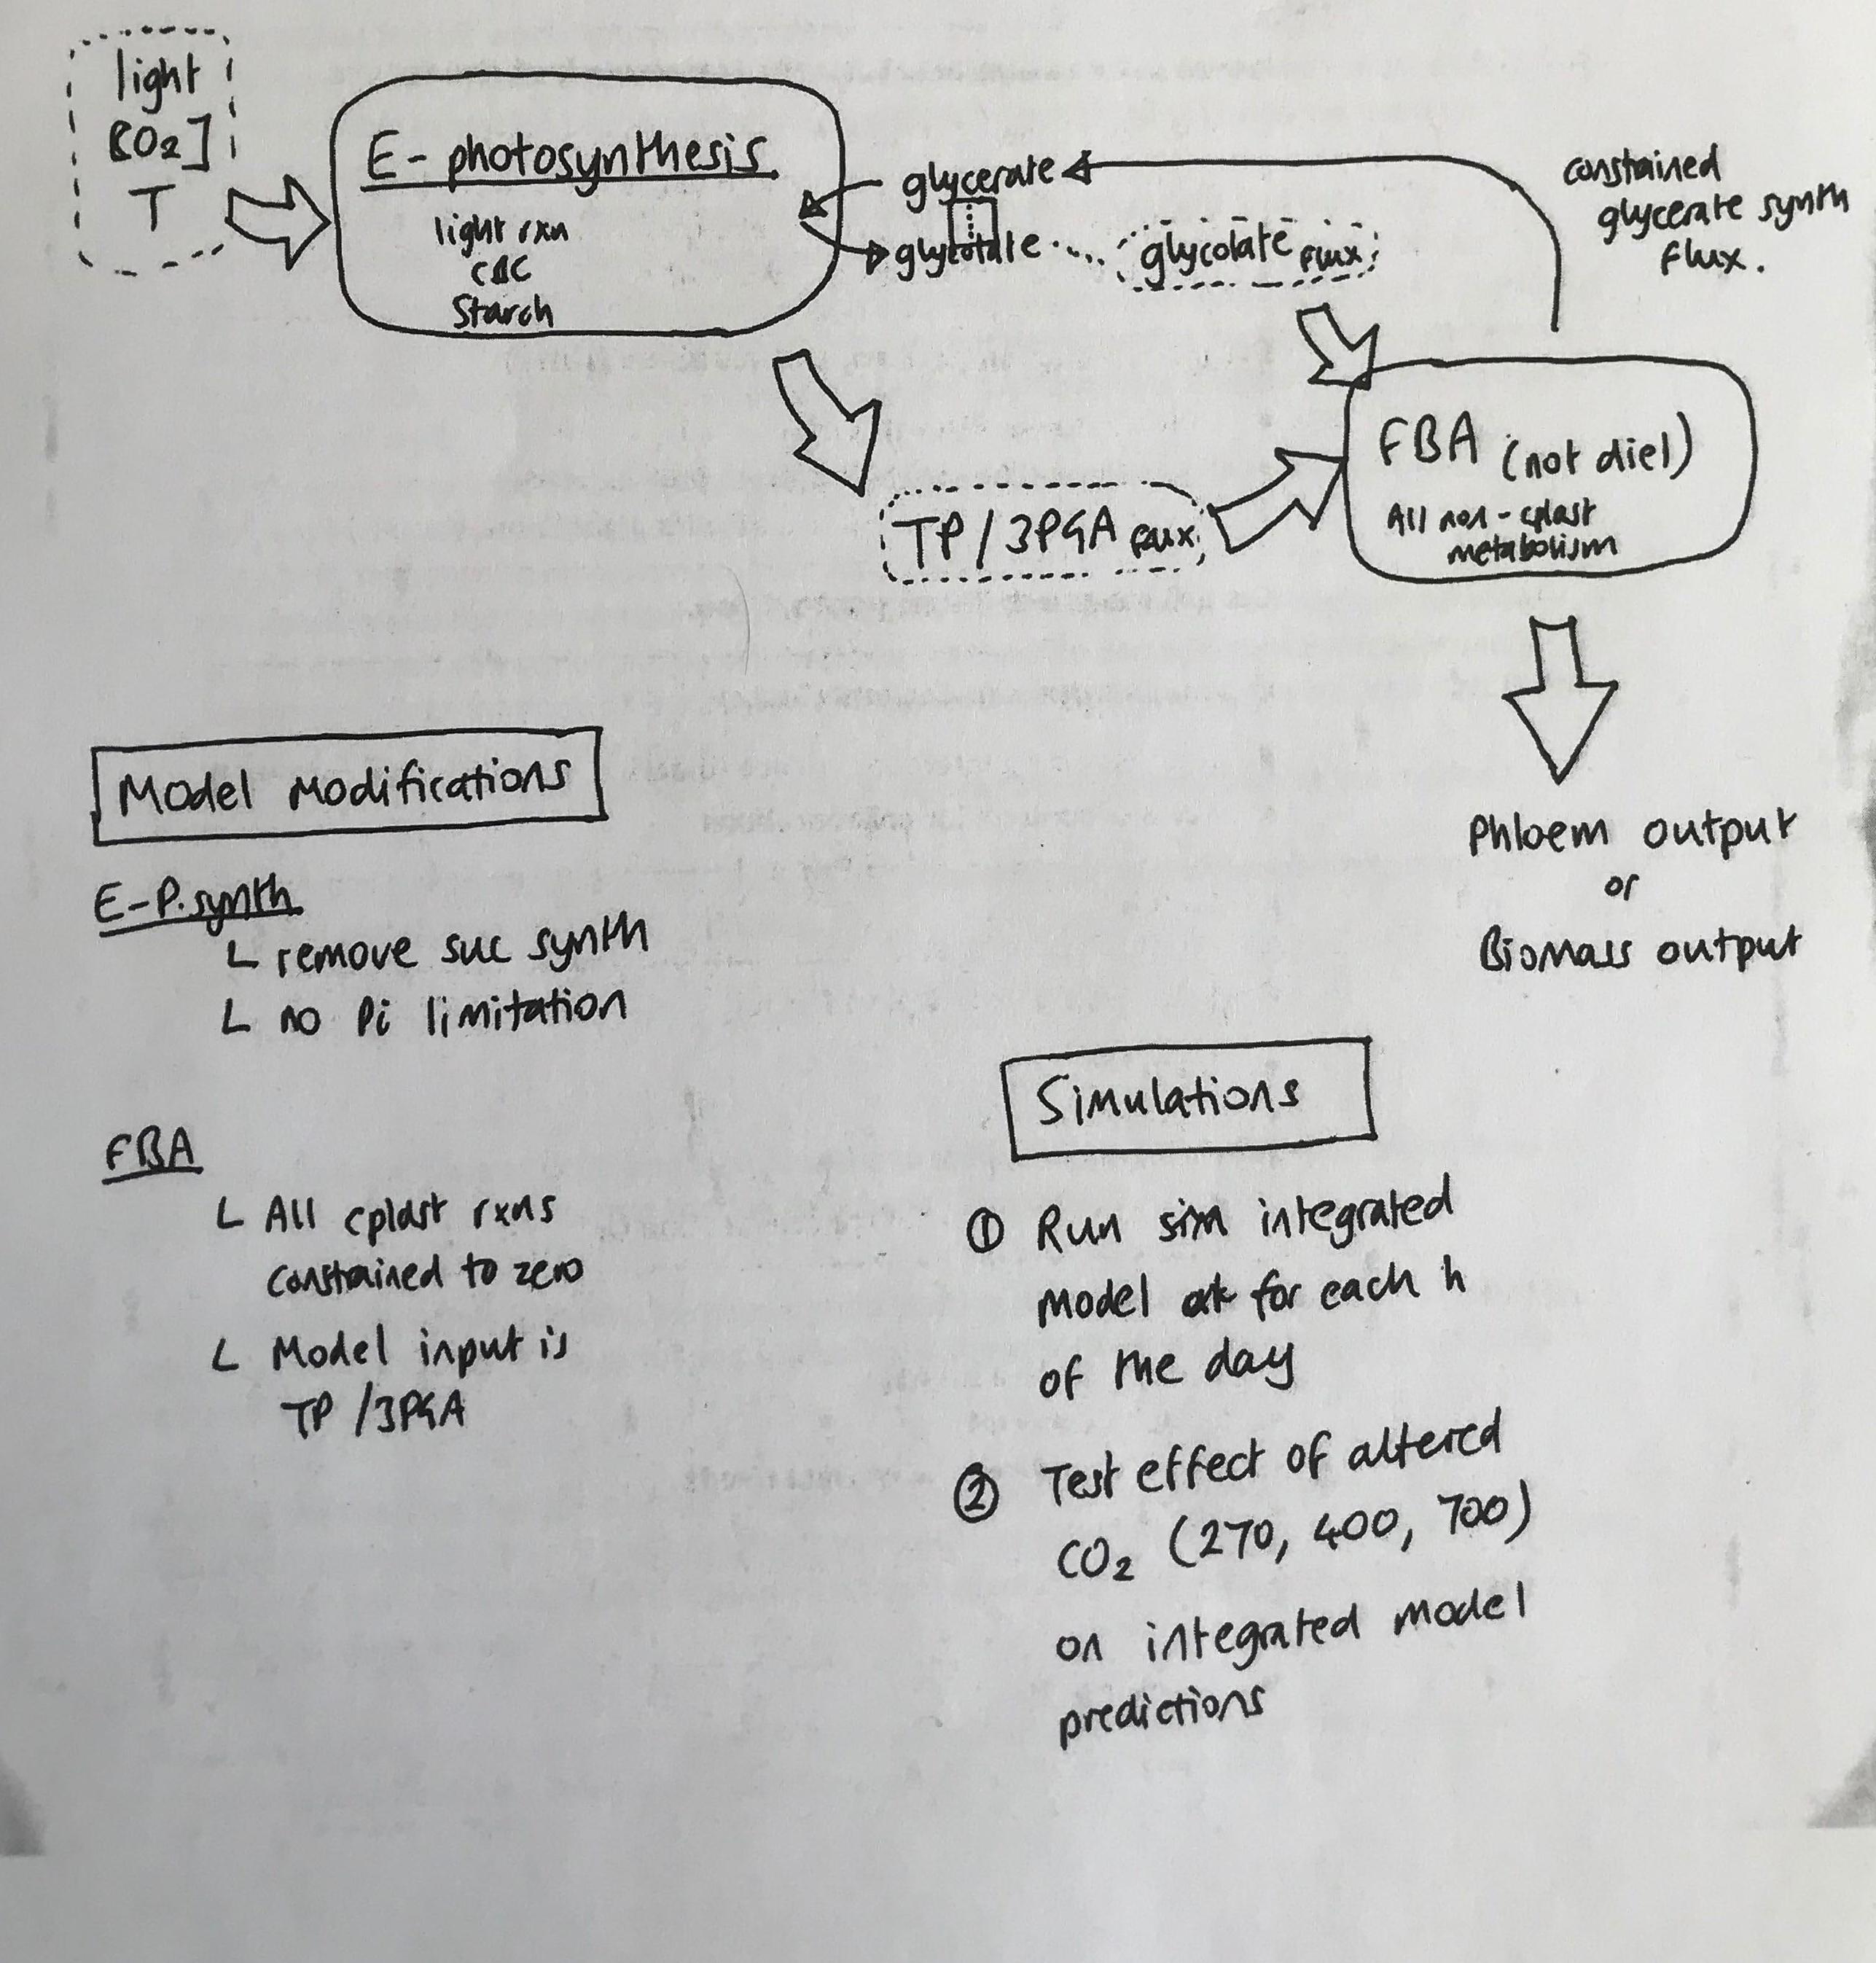 light
[CO2]
T
E-photosynthesis
light rxn
CBC
Starch
glycerate
glycolate
glycolate flux
constrained
glycerate synth
flux.
FBA (not diel)
All non-cplast
metabolism
TP/3PGA flux
Phloem output
or
Biomass output
Model Modifications
E-P.synth
L remove suc synth
L no Pi limitation
FBA
L All cplast rxns
constrained to zero
L Model input is
TP/3PGA
Simulations
① Run sim integrated
model for each h
of the day
② Test effect of altered
CO2 (270, 400, 700)
on integrated model
predictions